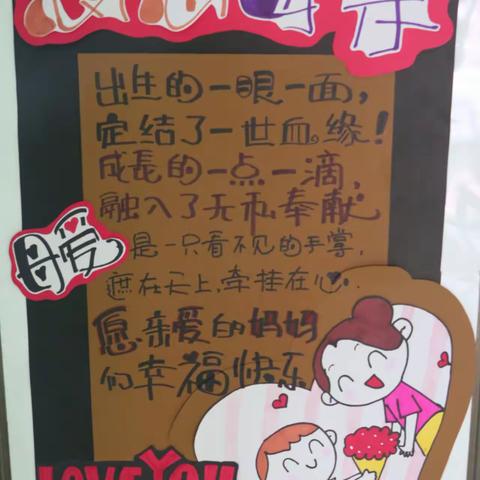 感恩母亲
出生的一眼一面,
定结了一世血缘!
成長的一点一滴,
融入了无私奉献
母爱
是一只看不见的手掌,
遮在天上,牵挂在心.
愿亲爱的妈妈
们幸福快乐
LOVE YOU